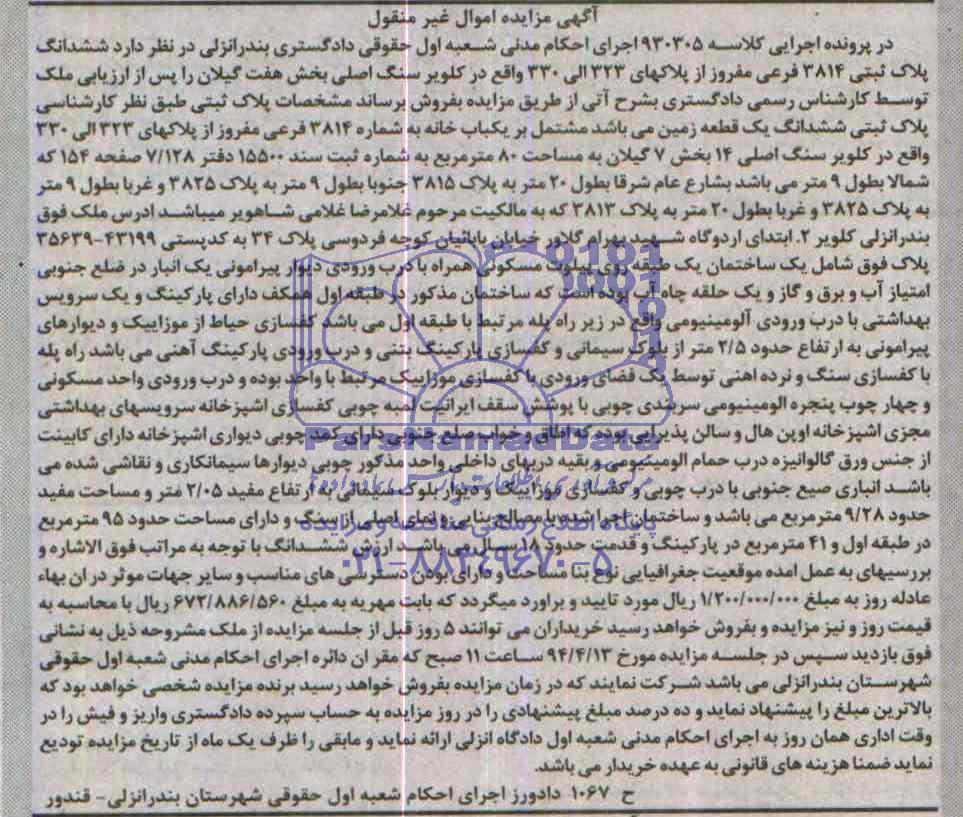 آگهی مزایده اموال غیر منقول
در پرونده اجرایی کلاسه ۹۳۰۳۰۵ اجرای احکام مدنی شعبه اول حقوقی دادگستری بندرانزلی در نظر دارد ششدانگ
پلاک ثبتی ۳۸۱۴ فرعی مفروز از پلاکهای ۳۲۳ الی ۳۳۰ واقع در کلویر سنگ اصلی بخش هفت گیلان را پس از ارزیابی ملک
توسط کارشناس رسمی دادگستری بشرح آتی از طریق مزایده بفروش برساند مشخصات پلاک ثبتی طبق نظر کارشناسی
پلاک ثبتی ششدانگ یک قطعه زمین می باشد مشتمل بر یکباب خانه به شماره ۳۸۱۴ فرعی مفروز از پلاکهای ۳۲۳ الی ۳۳۰
واقع در کلویر سنگ اصلی ۱۴ بخش ۷ گیلان به مساحت ۸۰ مترمربع به شماره ثبت سند ۱۵۵۰۰ دفتر ۷/۱۲۸ صفحه ۱۵۴ که
شمالا بطول ۹ متر می باشد بشارع عام شرقا بطول ۲۰ متر به پلاک ۳۸۱۵ جنوبا بطول ۹ متر به پلاک ۳۸۲۵ و غربا بطول ۹ متر
به پلاک ۳۸۲۵ و غربا بطول ۲۰ متر به پلاک ۳۸۱۳ که به مالکیت مرحوم غلامرضا غلامی شاهویر میباشد ادرس ملک فوق
بندرانزلی کلویر ۲. ابتدای اردوگاه شهید بهرام گلاور خیابان بابائیان کوچه فردوسی پلاک ۳۴ به کدپستی ۴۳۱۹۹-۳۵۶۳۹
پلاک فوق شامل یک ساختمان یک طبقه روی پیلوت مسکونی همراه با درب ورودی دیوار پیرامونی یک انبار در ضلع جنوبی
امتیاز آب و برق و گاز و یک حلقه چاه آب بوده است که ساختمان مذکور در طبقه اول همکف دارای پارکینگ و یک سرویس
بهداشتی با درب ورودی آلومینیومی واقع در زیر راه پله مرتبط با طبقه اول می باشد کفسازی حیاط از موزاییک و دیوارهای
پیرامونی به ارتفاع حدود ۲/۵ متر از بلوک سیمانی و کفسازی پارکینگ بتنی و درب ورودی پارکینگ آهنی می باشد راه پله
با کفسازی سنگ و نرده اهنی توسط یک فضای ورودی با کفسازی موزاییک مرتبط با واحد بوده و درب ورودی واحد مسکونی
و چهار چوب پنجره الومینیومی سربندی چوبی با پوشش سقف ایرانیت لمبه چوبی کفسازی اشپزخانه سرویسهای بهداشتی
مجزی اشپزخانه اوپن هال و سالن پذیرایی بوده که اطاق و خواب ضلع جنوبی دارای کمد چوبی دیواری اشپزخانه دارای کابینت
از جنس ورق گالوانیزه درب حمام الومینیومی و بقیه دربهای داخلی واحد مذکور چوبی دیوارها سیمانکاری و نقاشی شده می
باشد انباری ضیع جنوبی با درب چوبی و کفسازی موزاییک و دیوار بلوک سیمانی به ارتفاع مفید ۲/۰۵ متر و مساحت مفید
حدود ۹/۲۸ مترمربع می باشد و ساختمان اجرا شده با مصالح بنایی و نمای اصلی از سنگ و دارای مساحت حدود ۹۵ مترمربع
در طبقه اول و ۴۱ مترمربع در پارکینگ و قدمت حدود ۱۸ سال می باشد ارزش ششدانگ با توجه به مراتب فوق الاشاره و
بررسیهای به عمل امده موقعیت جغرافیایی نوع بنا مساحت و دارای بودن دسترسی های مناسب و سایر جهات موثر در ان بهاء
عادله روز به مبلغ ۱/۲۰۰/۰۰۰/۰۰۰ ریال مورد تایید و براورد میگردد که بابت مهریه به مبلغ ۶۷۲/۸۸۶/۵۶۰ ریال با محاسبه به
قیمت روز و نیز مزایده و بفروش خواهد رسید خریداران می توانند ۵ روز قبل از جلسه مزایده از ملک مشروحه ذیل به نشانی
فوق بازدید سپس در جلسه مزایده مورخ ۹۴/۴/۱۳ ساعت ۱۱ صبح که مقر ان دائره اجرای احکام مدنی شعبه اول حقوقی
شهرستان بندرانزلی می باشد شرکت نمایند که در زمان مزایده بفروش خواهد رسید برنده مزایده شخصی خواهد بود که
بالاترین مبلغ را پیشنهاد نماید و ده درصد مبلغ پیشنهادی را در روز مزایده به حساب سپرده دادگستری واریز و فیش را در
وقت اداری همان روز به اجرای احکام مدنی شعبه اول دادگاه انزلی ارائه نماید و مابقی را ظرف یک ماه از تاریخ مزایده تودیع
نماید ضمنا هزینه های قانونی به عهده خریدار می باشد.
ح ۱۰۶۷ دادورز اجرای احکام شعبه اول حقوقی شهرستان بندرانزلی- قندور
ParsNamadData
پایگاه اطلاع رسانی مناقصه و مزایده
۰۲۱-۸۸۳۴۹۶۷۰-۵